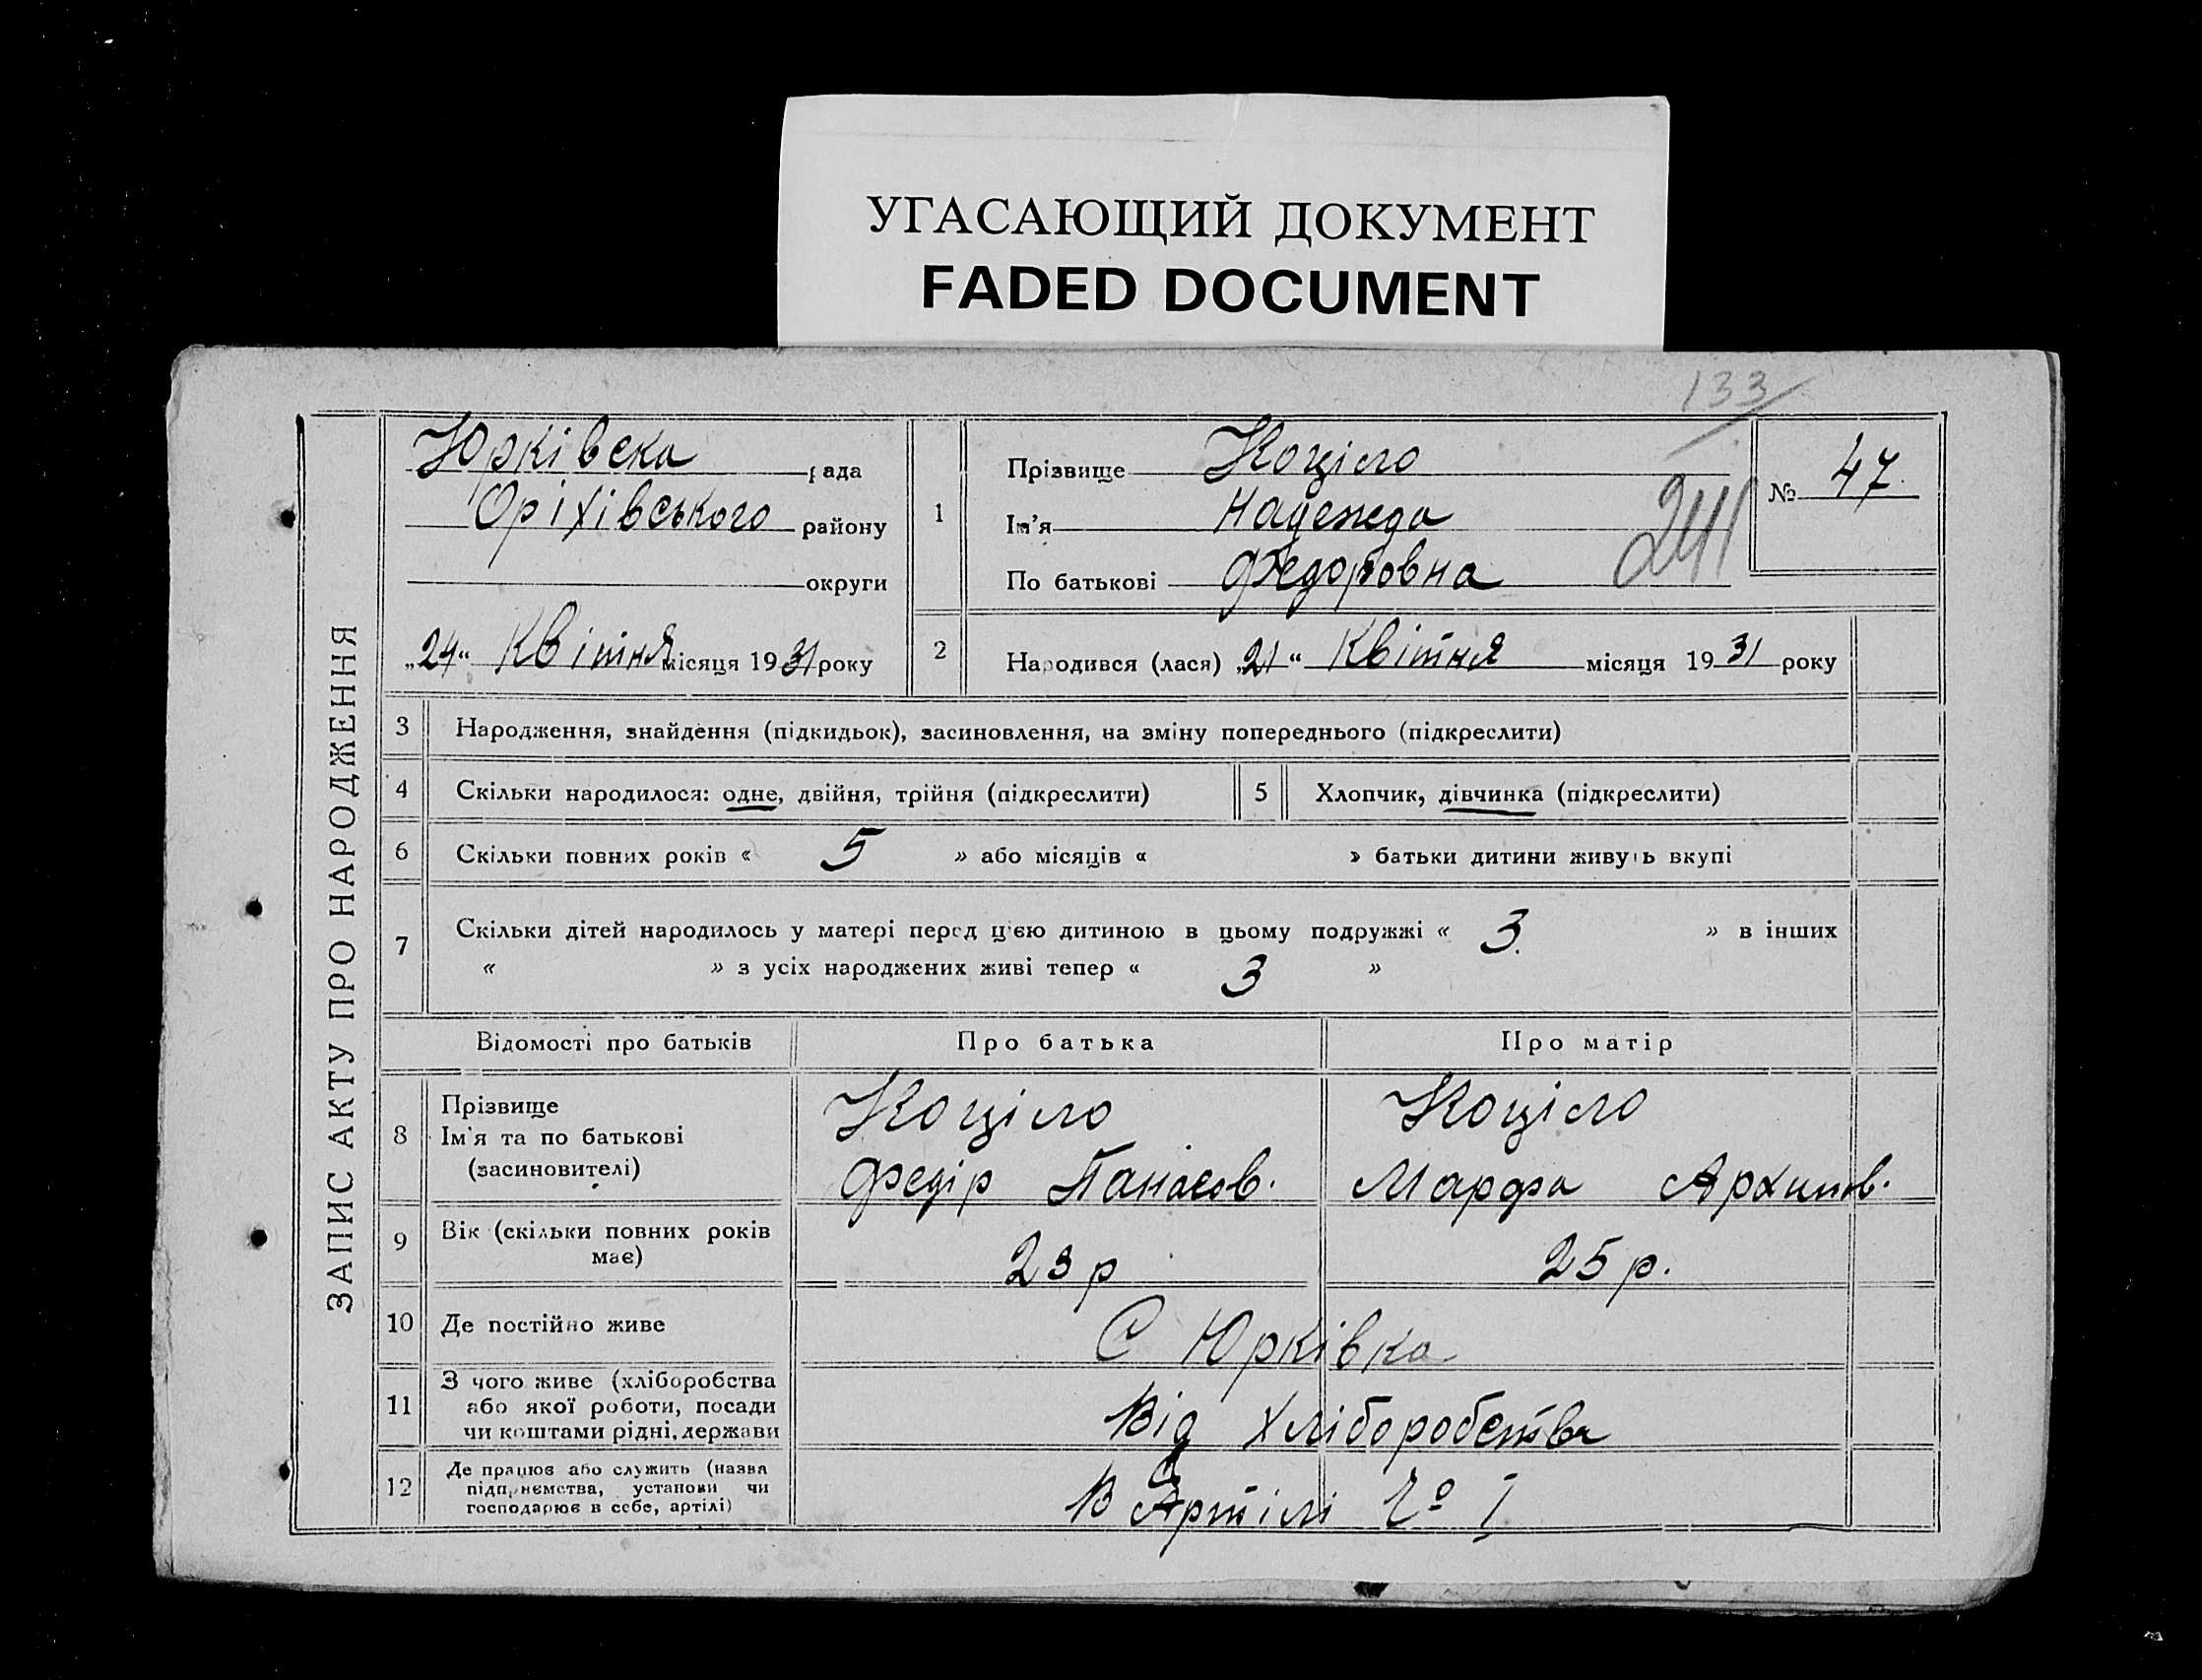 УГАСАЮЩИЙ ДОКУМЕНТ
FADED DOCUMENT
133
ЗАПИС АКТУ ПРО НАРОДЖЕННЯ
Юрківска рада
Оріхівського району
округи
„24“ Квітня місяця 1931 року
1
Прізвище Коціло
Ім'я Надежда
По батькові Федоровна
241
№ 47.
2 Народився (лася) „21“ Квітня місяця 1931 року
3 Народження, знайдення (підкидьок), засиновлення, на зміну попереднього (підкреслити)
4 Скільки народилося: одне, двійня, трійня (підкреслити) 5 Хлопчик, дівчинка (підкреслити)
6 Скільки повних років « 5 » або місяців « » батьки дитини живуть вкупі
7 Скільки дітей народилось у матері перед цією дитиною в цьому подружжі « 3 » в інших
« » з усіх народжених живі тепер « 3 »
Відомості про батьків Про батька Про матір
8
Прізвище Коціло Коціло
Ім'я та по батькові
(засиновителі) Федір Панасов. Марфа Архипов.
9 Вік (скільки повних років
має) 23 р 25 р.
10 Де постійно живе С Юрківка
11
З чого живе (хліборобства
або якої роботи, посади
чи коштами рідні, держави Від Хліборобства
12
Де працює або служить (назва
підприємства, установи чи
господарює в себе, артілі) В Артілі I